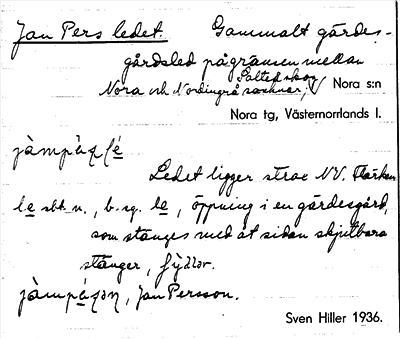 Jan Pers ledet. Gammalt gärdes-
gårdsled på gränsen mellan
Nora och Nordingrå socknar, Nora s:n
Nora tg, Västernorrlands l.
Ledet ligger strax NV.
le sbt. n., b. sg. le, öppning i en gärdesgård,
som stänges med åt sidan skjutbara
stänger,
Jan Persson.
Sven Hiller 1936.